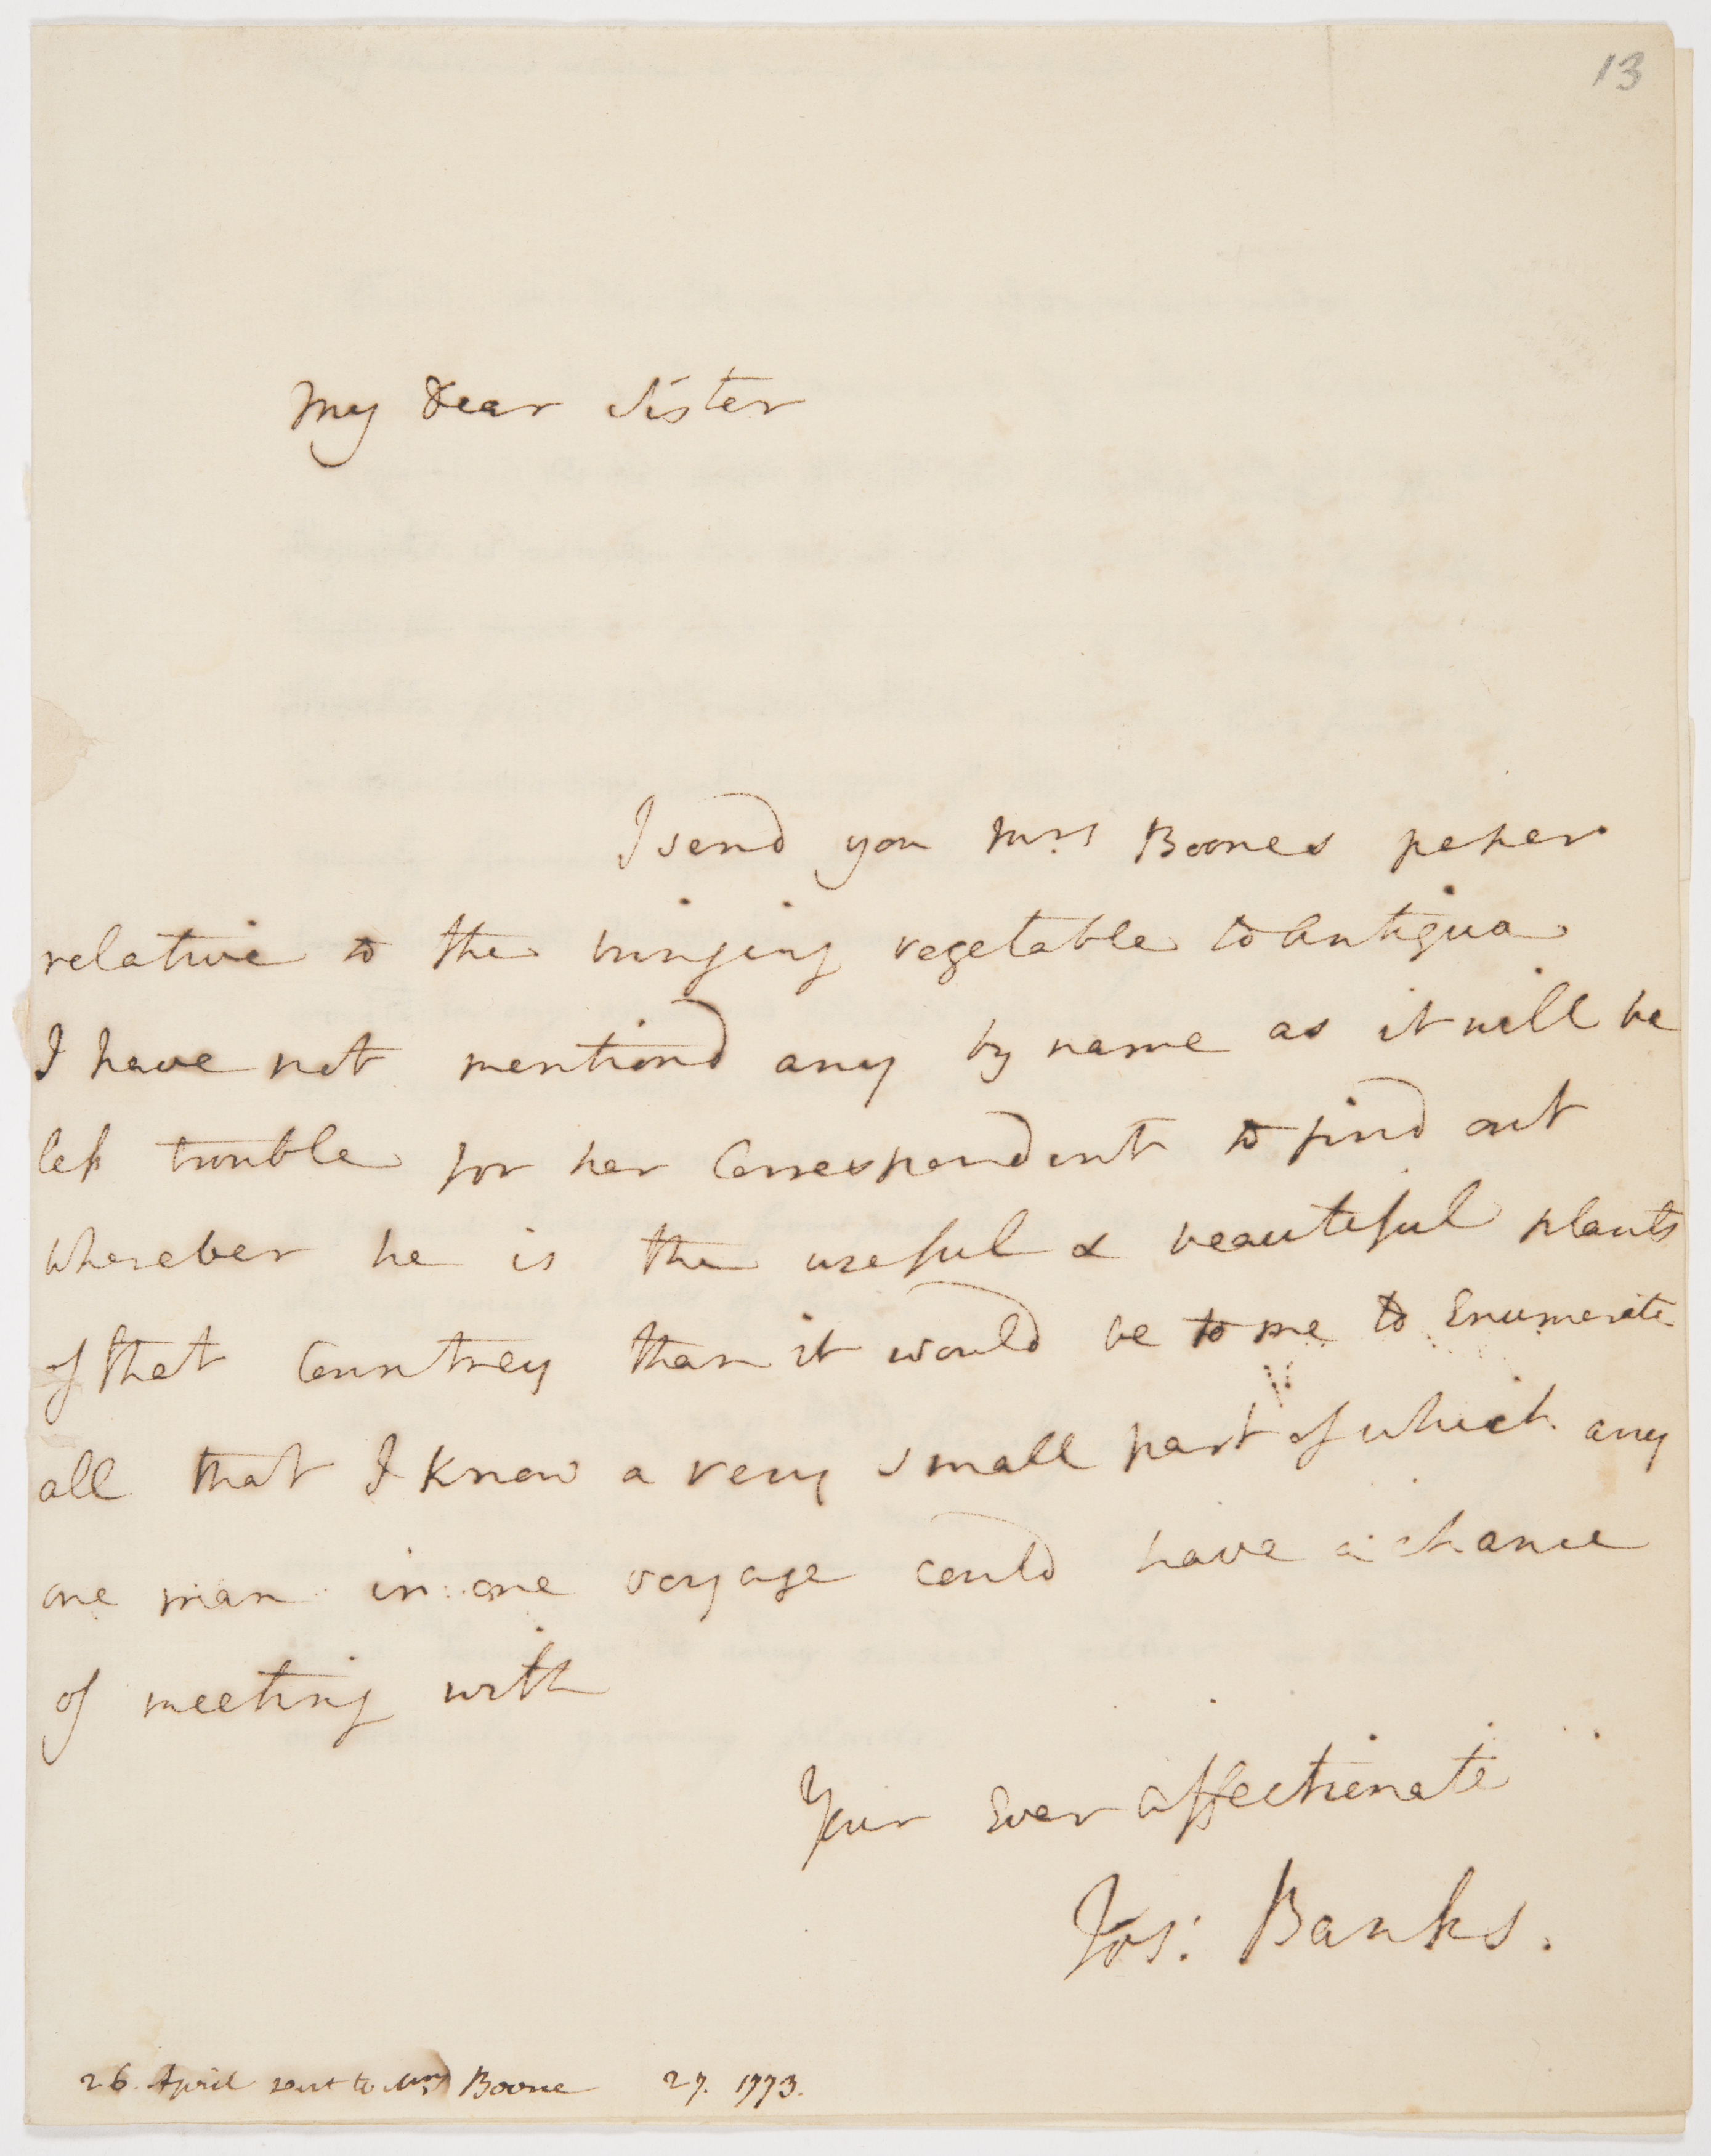 13
My Dear Sister
I send you Mrs Boones peper
relative to the bringing vegetable to Antigua
I have not mentiond any by name as it will be
less trouble for her Correspondent to find out
wherever he is the useful & beautiful plants
of that Countrey than it would be to me to Enumerate
all that I know a very small part of which any
one man in one voyage could have a chance
of meeting with
Your Ever affectionate
Jos: Banks.
26. April sent to Mrs Boone 27. 1773.